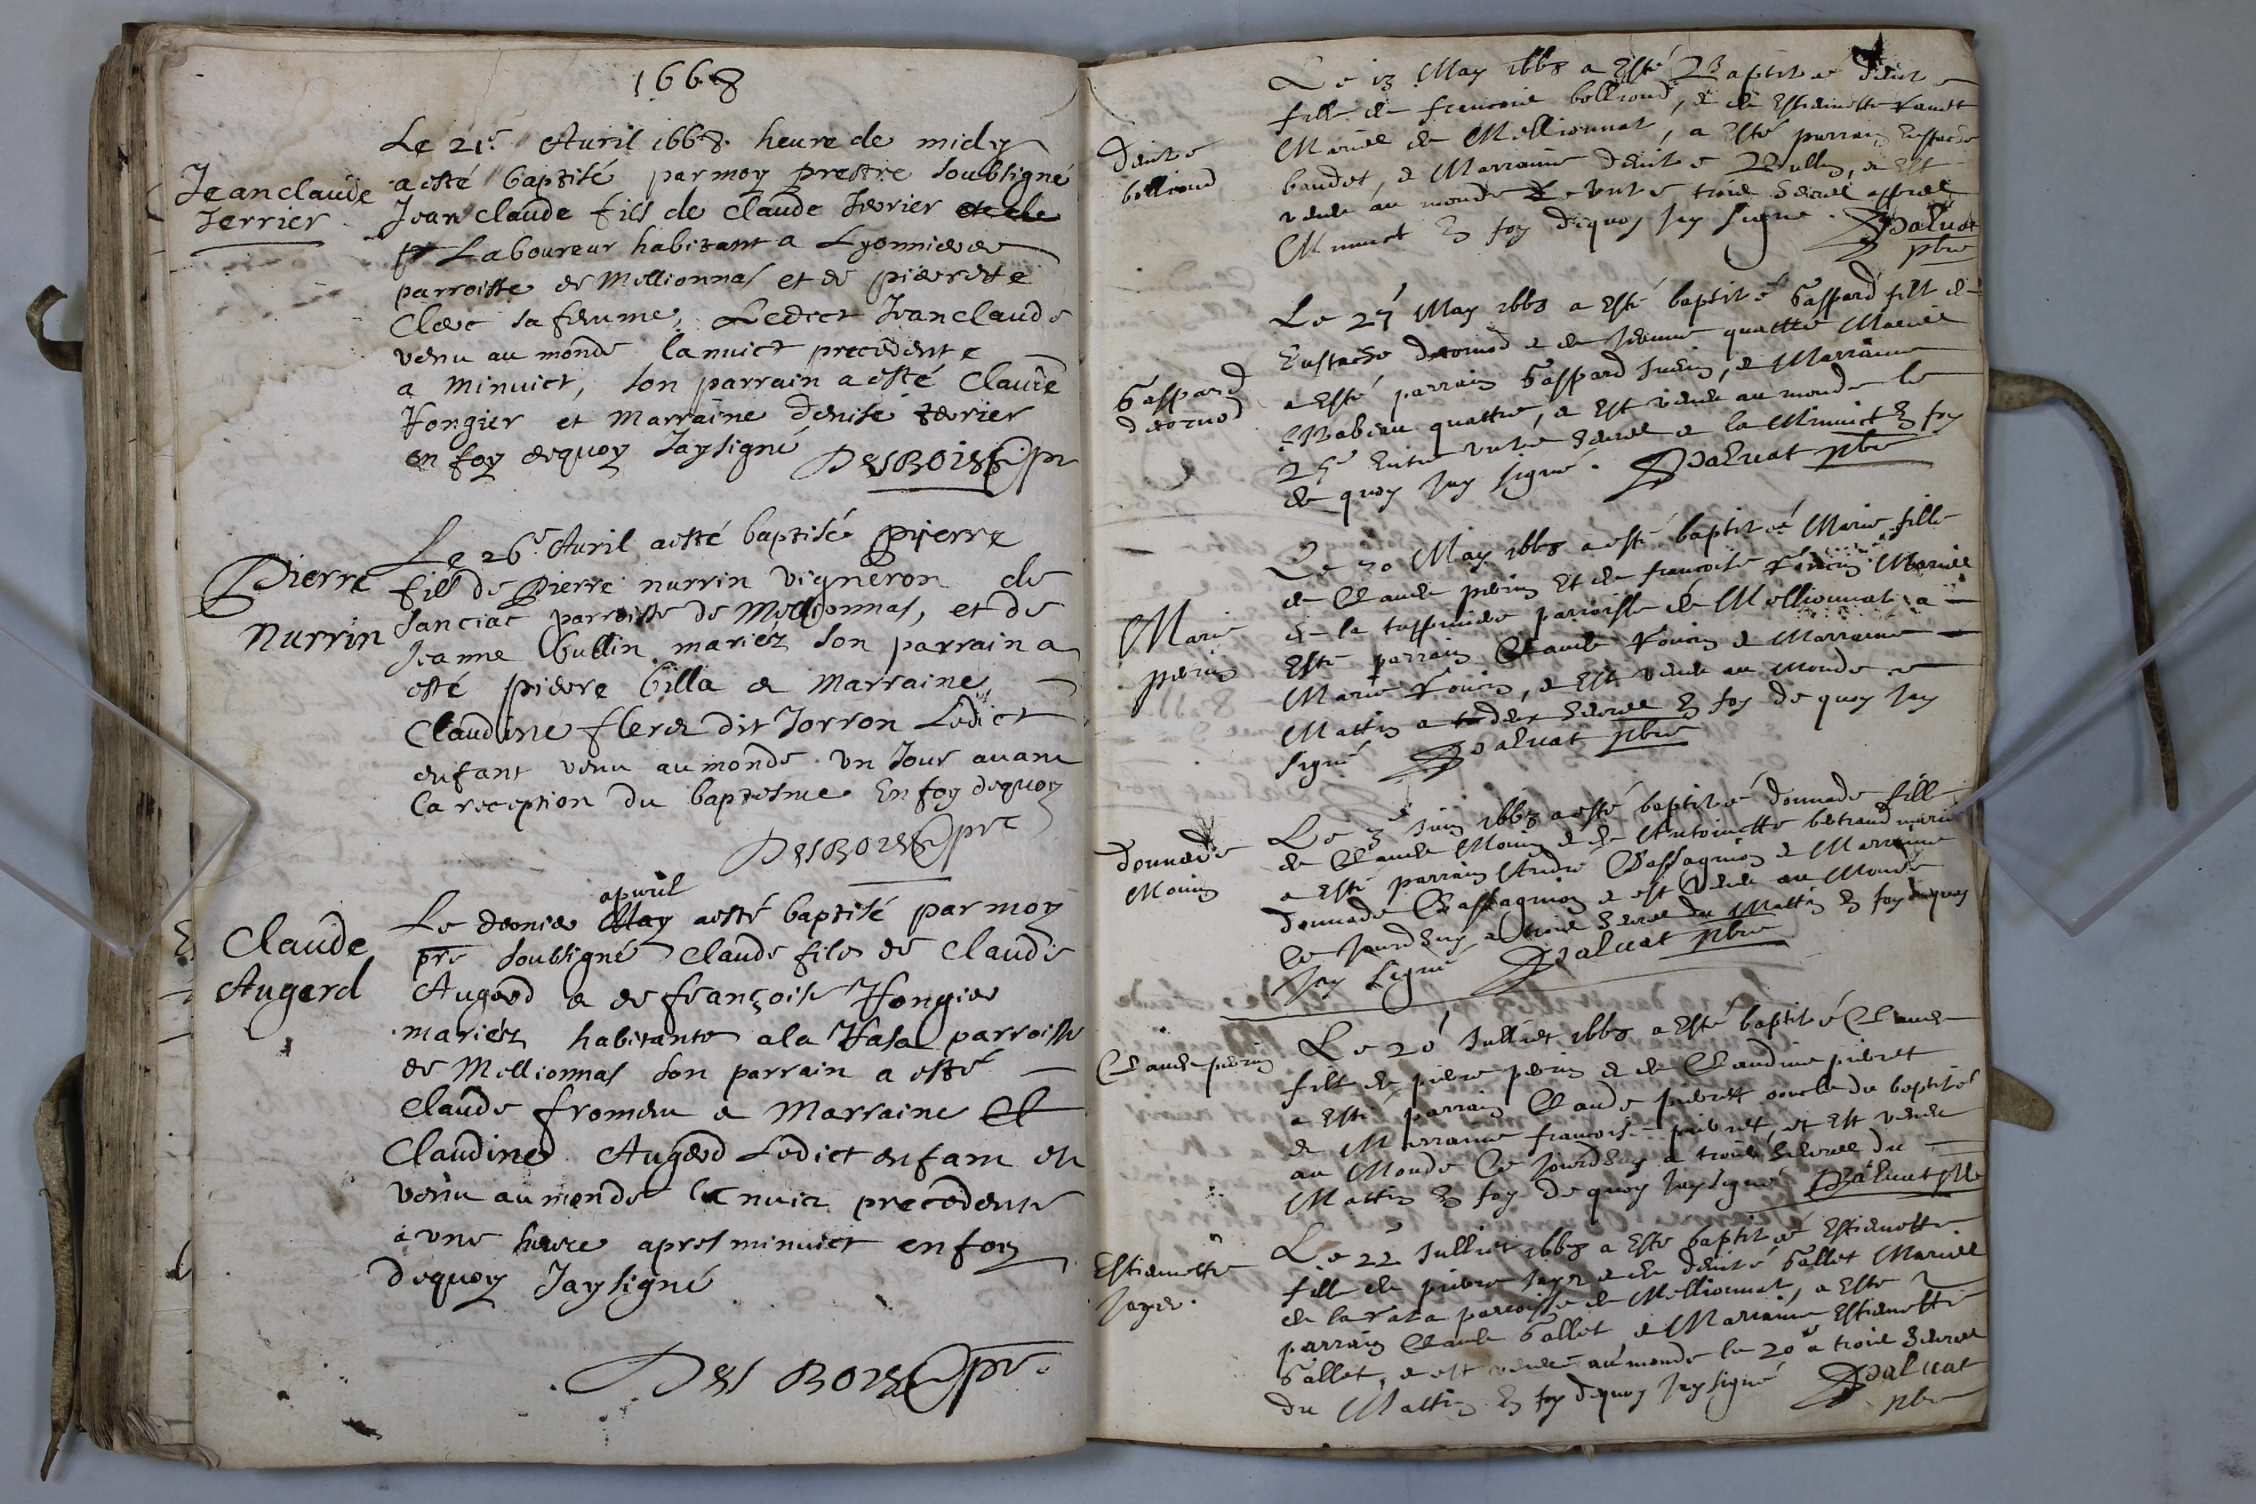 1668
Jeanclaude
Terrier
Le 21e Avril 1668 heure de midy
a esté baptisé par moy prestre soubsigné
Jean claude fils de claude Terrier
Laboureur habitant a Lyonnieres
parroisse de Mellionnas et de pierrette
Clerc sa femme, Ledict Jeanclaude
venu au monde la nuict precedente
a minuict, son parrain a esté Claude
Vongier et marraine denise terrier
en foy dequoy Jaysigné DESBOIS pr
Pierre
Nurrin
Le 26e Avril a esté baptisé pierre
fils de Pierre nurrin vigneron de
Sanciat parroisse de Mellionnas, et de
Jeanne Gullin mariéz son parrain a
esté pierre Gilla & marraine
Claudine dit Jorron Ledict
enfant venu au monde un Jour avant
la reception du baptesme En foy dequoy
DESBOIS pre
Claude
Augerd
apvril
Le dernier May a esté baptisé par moy
pre soubsigné Claude fils de Claude
Augerd & de françoise Vongier
mariéz habitants a la Vasa parroisse
de Mellionnas son parrain a esté
Claude fromen & Marraine
Claudine Augerd Ledict enfant est
venu au monde la nuict precedente
a une heure apres minuict en foy
dequoy Jaysigné
DES BOIS pr
Denise
bolliond
Le 13 May 1668 a Esté Baptisée denise
fille de francois bolliond, & de Estiennette
Mariés de Mellionnat, a Esté parrain Eustache
baudet, & Marraine denise Bullin, & Est
venue au monde trois heures appres
Minuict En foy dequoy Jay signé. Paluat
pbre
Gaspard
deornod
Le 27 May 1668 a Esté baptisé Gaspard fils de
Eustache deornod & de Jeanne quattre Mariés
a Esté parrain Gaspard & Marraine
Isabeau quattre, & Est venu au monde le
25e Entre unze heures & la Minuict En foy
de quoy Jay signé. Paluat pbre
Marie
perrin
Le 30 May 1668 a esté baptisée Marie fille
de Claude perrin Et de francoise Mariés
de la tuppiniere parroisse de Mellionnat, a
Esté parrain Claude & Marraine
Marie, & Est venue au Monde ce
Mattin a deux heures En foy de quoy Jay
signé Paluat pbre
donnade
Monin
Le 3e Juin 1668 a esté baptisée donnade fille
de Claude Monin & de Antoinette bertrand mariés
a Esté parrain André Chassagnion & Marraine
donnade Chassagnion & est venue au Monde
Ce Jourdhuy a trois heures du Mattin En foy dequoy
Jay signé Paluat pbre
Claude perrin
Le 20 Julliet 1668 a Esté baptisé Claude
fils de pierre perrin & de Claudine pierret
a Esté parrain Claude pierrett oncle du baptisé
& Marraine francoise pierret, et Est venu
au Monde Ce Jourdhuy a trois heures du
Mattin En foy dequoy Jay signé Paluat pbre
Estiennette
Jayer.
Le 22 Julliet 1668 a Esté baptisée Estiennette
fille de pierre Jayer & de denise Gallet Mariés
de la Vasa parroisse de Mellionnat, a Esté
parrain Claude Gallet & Marraine Estiennette
Gallet, & est venue au monde le 20 a trois heures
du Mattin En foy dequoy Jay signé Paluat
pbre